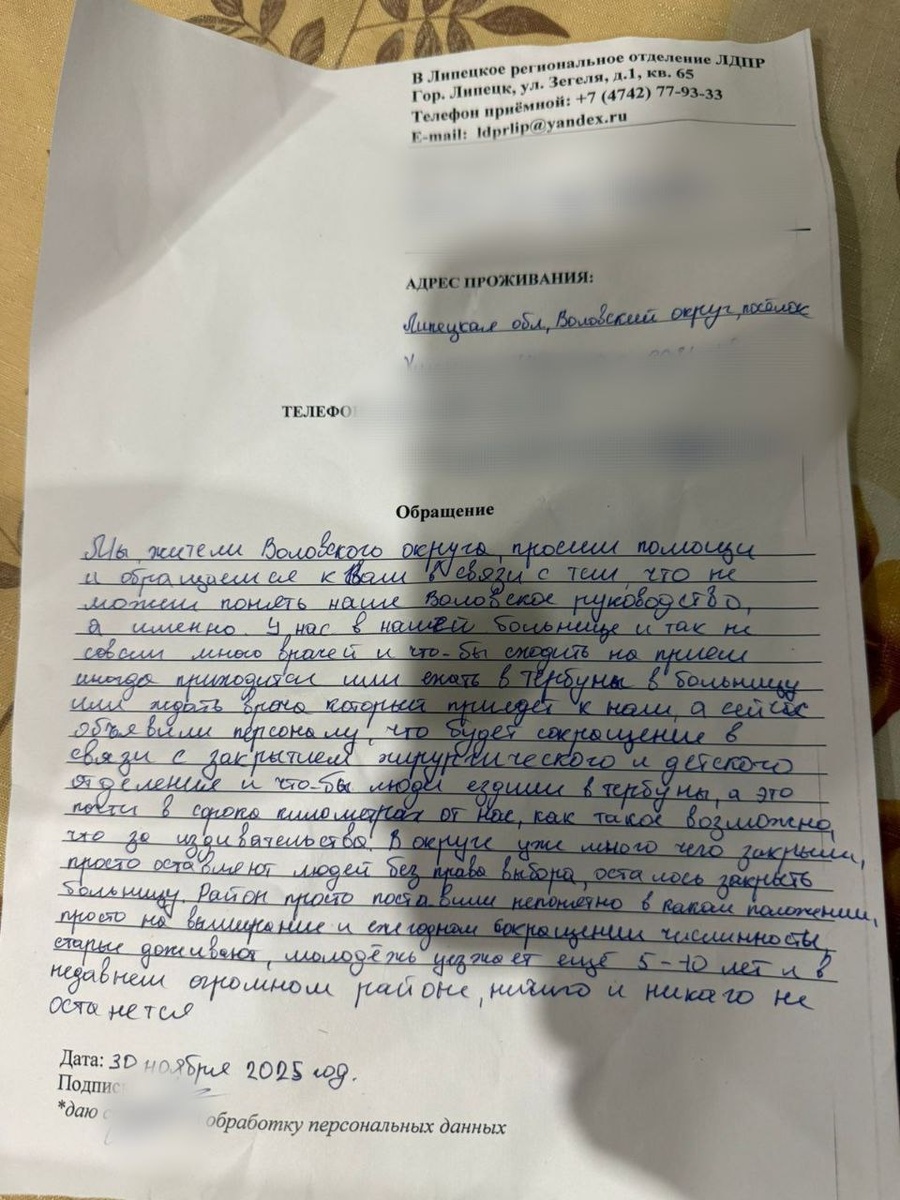 В Липецкое региональное отделение ЛДПР
Гор. Липецк, ул. Зегеля, д.1, кв. 65
Телефон приёмной: +7 (4742) 77-93-33
E-mail: ldprlip@yandex.ru
АДРЕС ПРОЖИВАНИЯ:
Липецкая обл, Воловский округ, посёлок
ТЕЛЕФО
Обращение
Мы, жители Воловского округа, просим помощи
и обращаемся к Вам в связи с тем, что не
можем понять наше Воловское руководство,
а именно. У нас в нашей больнице и так не
совсем много врачей и что-бы сходить на прием
иногда приходится или ехать в тербуны в больницу
или ждать врача который приедет к нам, а сейчас
объявили персоналу, что будет сокращение в
связи с закрытием хирургического и детского
отделения и что-бы люди ездили в тербуны, а это
почти в сорока километрах от нас, как такое возможно,
что за издивательства. В округе уже много чего закрыли,
просто оставляют людей без права выбора, осталось закрыть
больницу. Район просто поставили непонятно в каком положении,
просто на вымирание и ежегодном сокращении численности,
старые доживают, молодёжь уезжает ещё 5-10 лет и в
недавнем огромном районе, ничего и никого не
останется
Дата: 30 ноября 2025 год.
Подпис
*даю обработку персональных данных